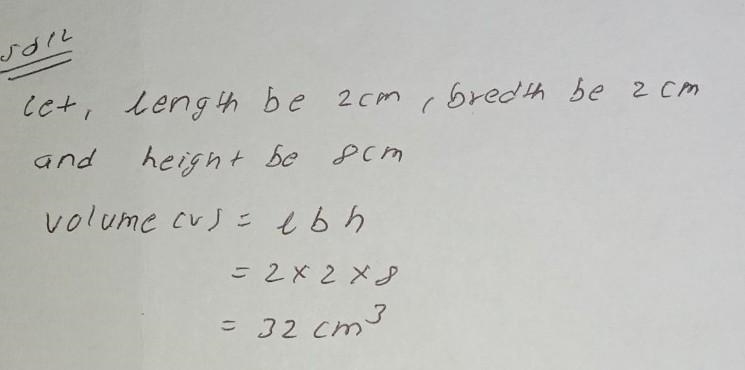 soln
let, length be 2cm, bredth be 2cm
and height be 8cm
volume (v) = l b h
= 2 × 2 × 8
= 32 cm³